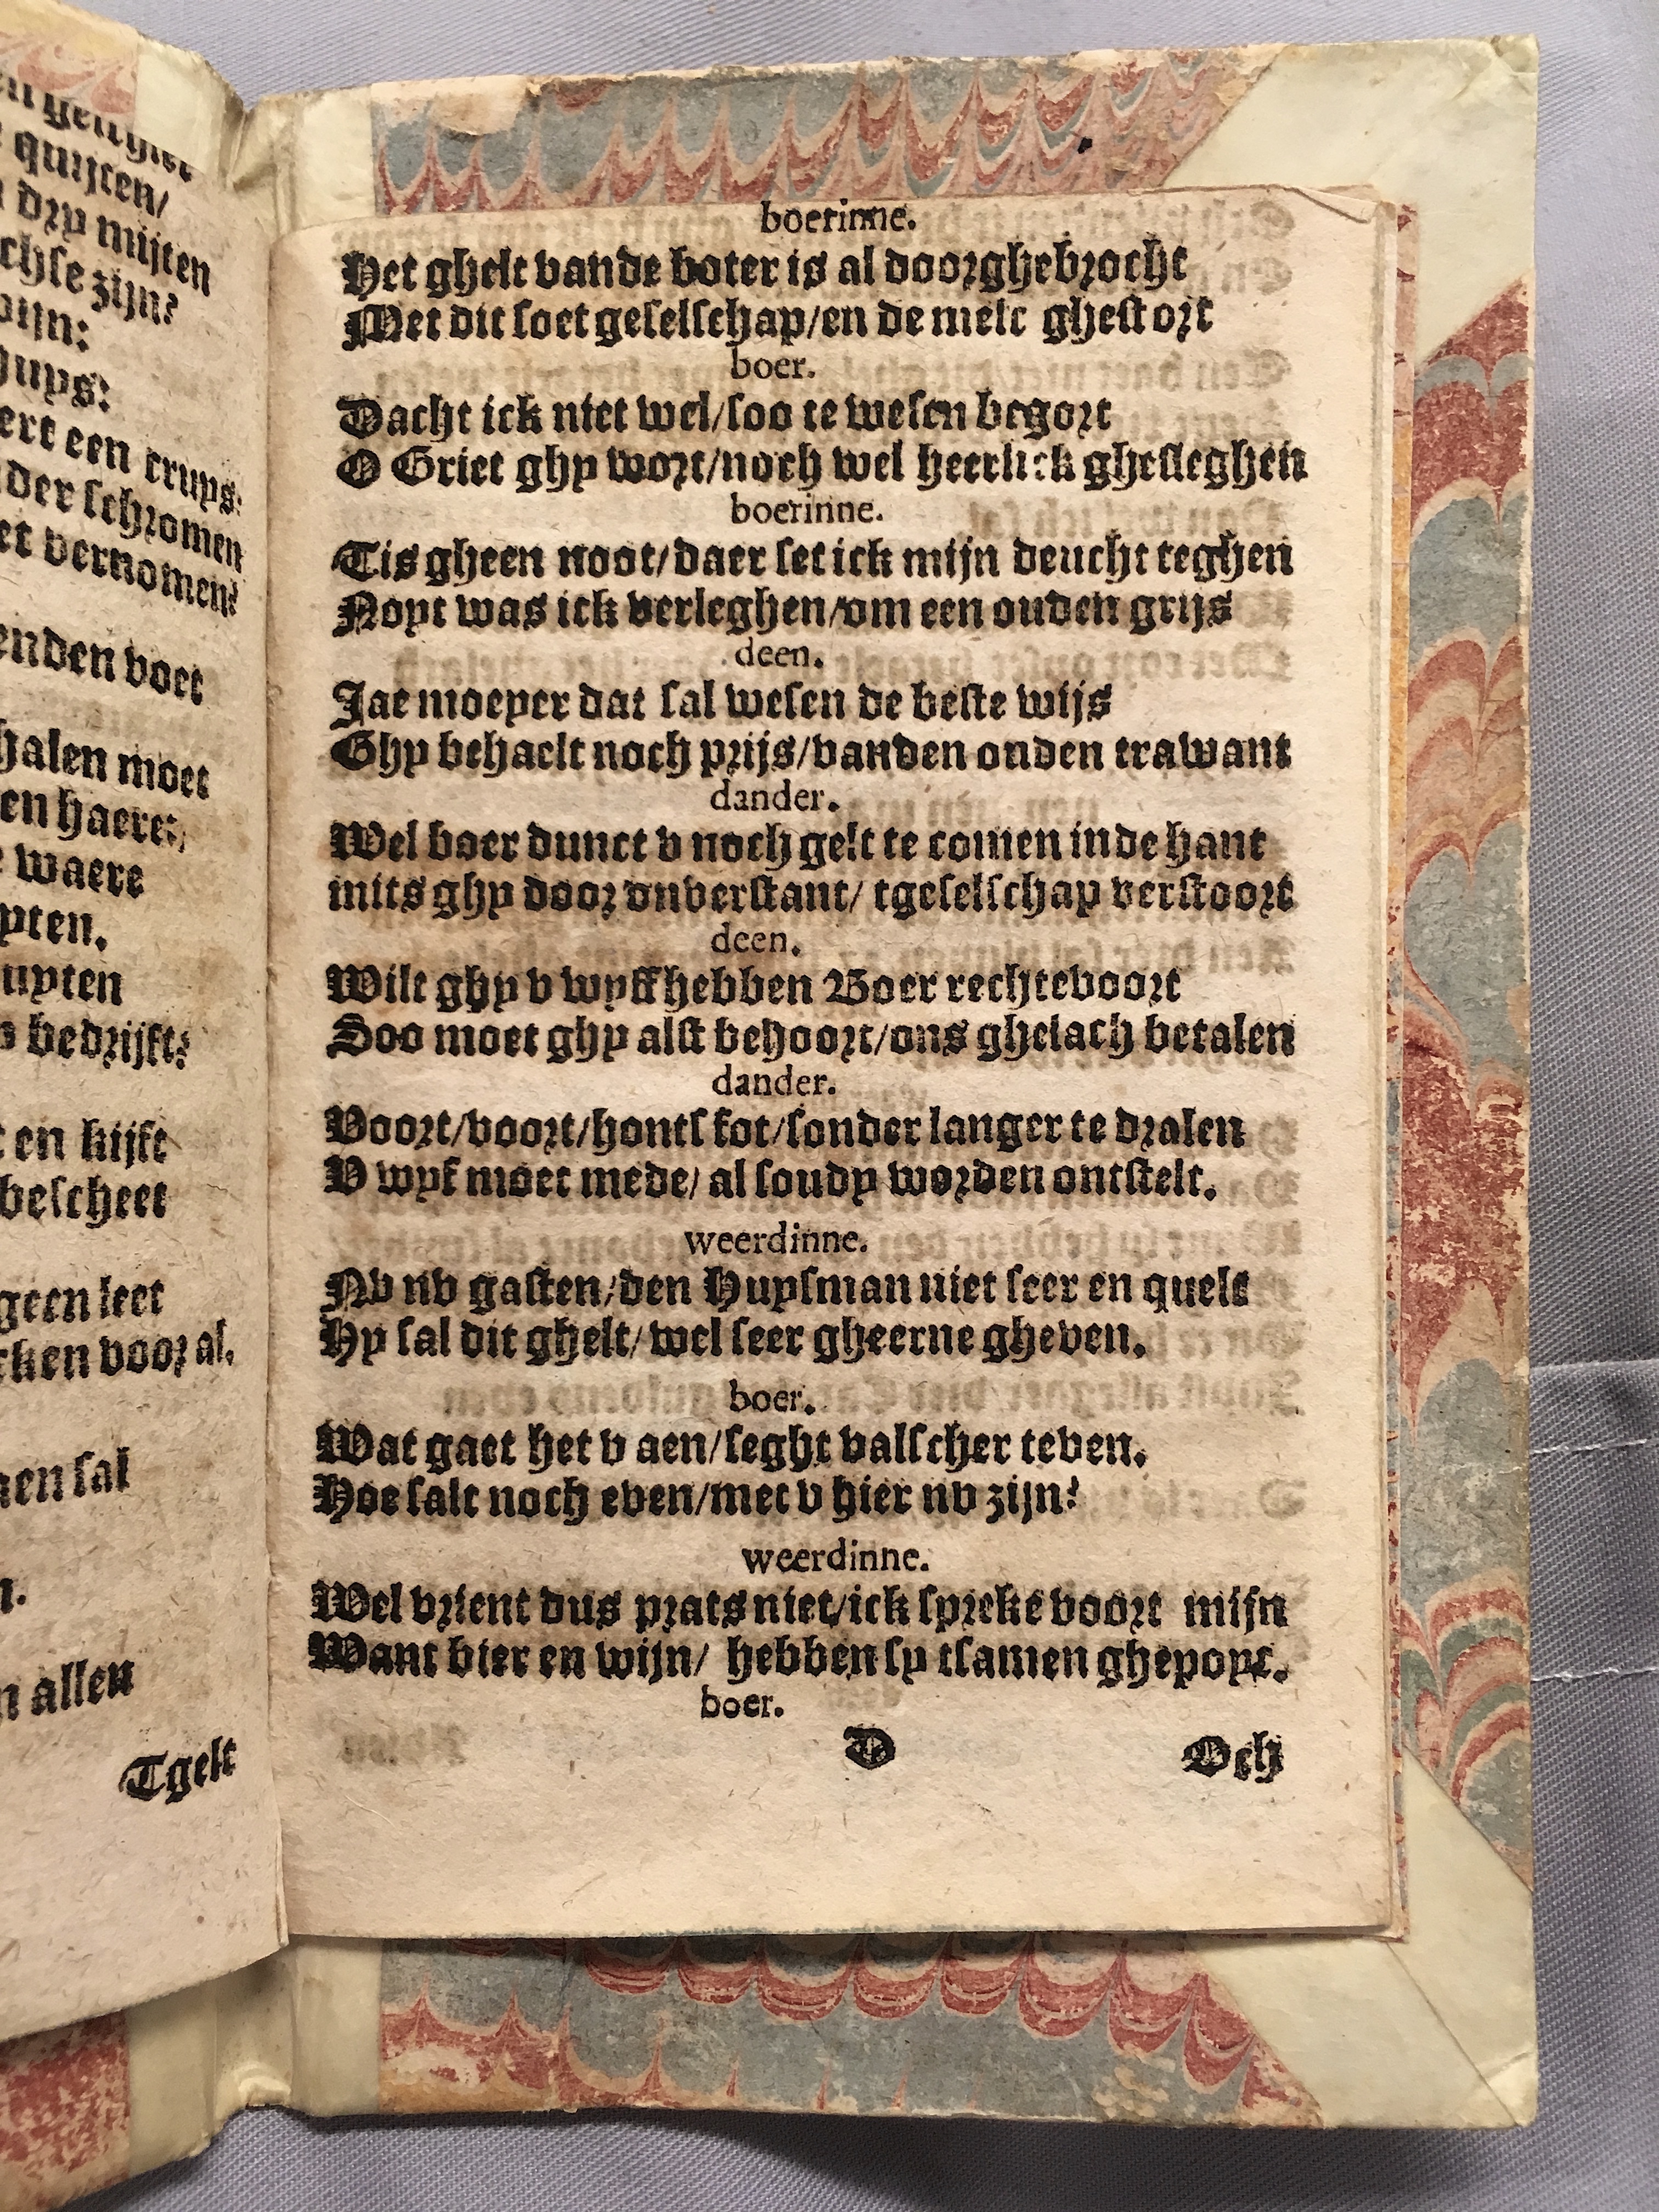 quijten/
dry mijten
chse zijn?
wijn:
huys:
ert een cruys:
der schromen
et vernomen?
enden voet
halen moet
en haere:
waere
pten.
uyten
bedrijft?
en kijft
bescheet
geen leet
cken voor al.
en sal
n.
n allen
Tgelt
boerinne.
Het ghelt vande boter is al doorghebrocht
Met dit soet geselschap/en de melc ghestort
boer.
Dacht ick niet wel/soo te wesen begort
O Griet ghy wort/noch wel heerlick ghesleghen
boerinne.
Tis gheen noot/daer set ick mijn deucht teghen
Noyt was ick verleghen/om een ouden grijs
deen.
Jae moeyer dat sal wesen de beste wijs
Ghy behaelt noch prijs/vanden ouden trawant
dander.
Wel boer dunct v noch gelt te comen inde hant
mits ghy door onverstant/ tgeselschap verstoort
deen.
Wilt ghy v wyff hebben Boer rechtevoort
Soo moet ghy alst behoort/ons ghelach betalen
dander.
Voort/voort/honts fot/sonder langer te dralen
V wyf moet mede/ al soudy worden ontstelt.
weerdinne.
Nv nv gasten/den Huysman niet seer en quelt
Hy sal dit ghelt/ wel seer gheerne gheven.
boer.
Wat gaet het v aen/seght valscher teven.
Hoe salt noch even/met v hier nv zijn?
weerdinne.
Wel vrient dus prats niet/ick spreke voort mijn
Want bier en wijn/ hebben sy tsamen ghepoyt.
boer.
D Och